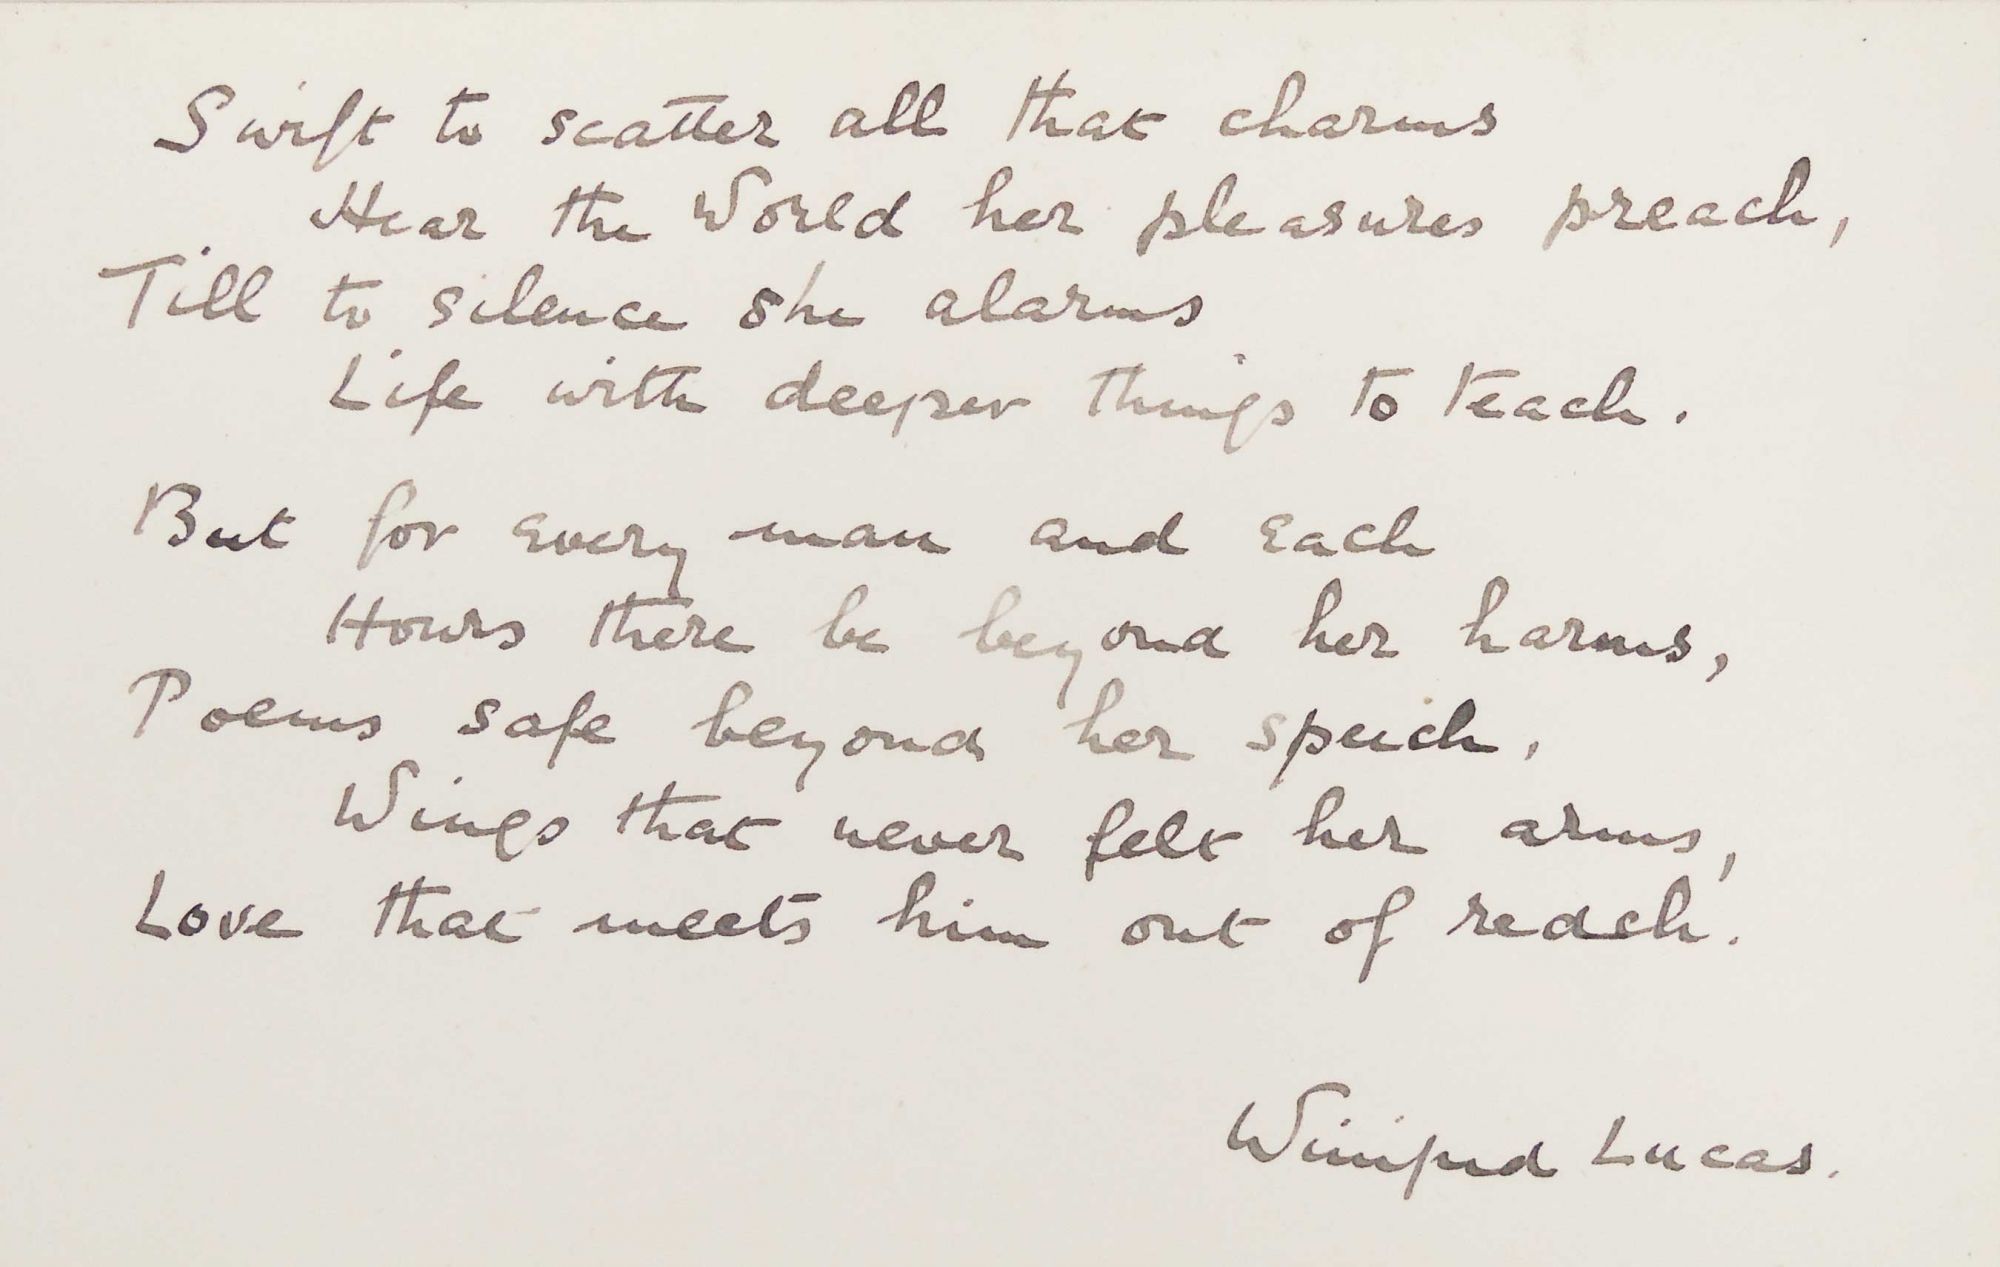 Swift to scatter all that charms
Hear the World her pleasures preach,
Till to silence she alarms
Life with deeper things to teach.
But for every man and each
Hours there be beyond her harms,
Poems safe beyond her speech,
Wings that never felt her arms,
Love that meets him out of reach.
Winifred Lucas.